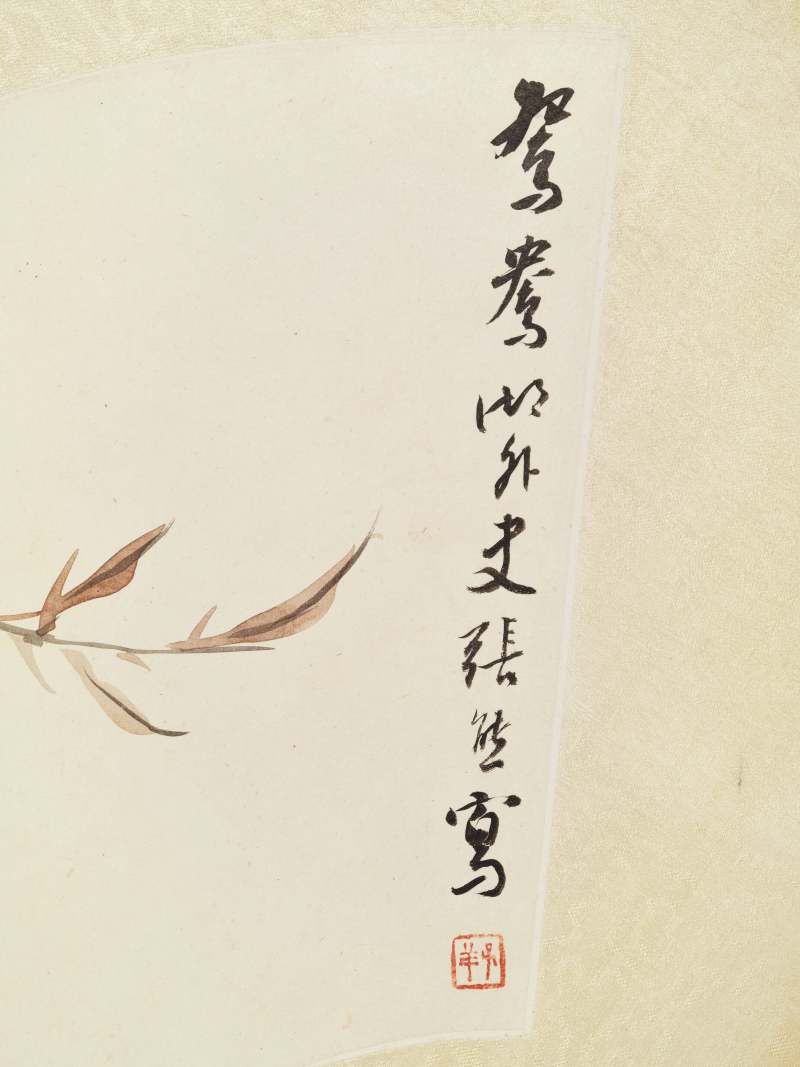 鴛鴦湖外史張熊寫
子羊